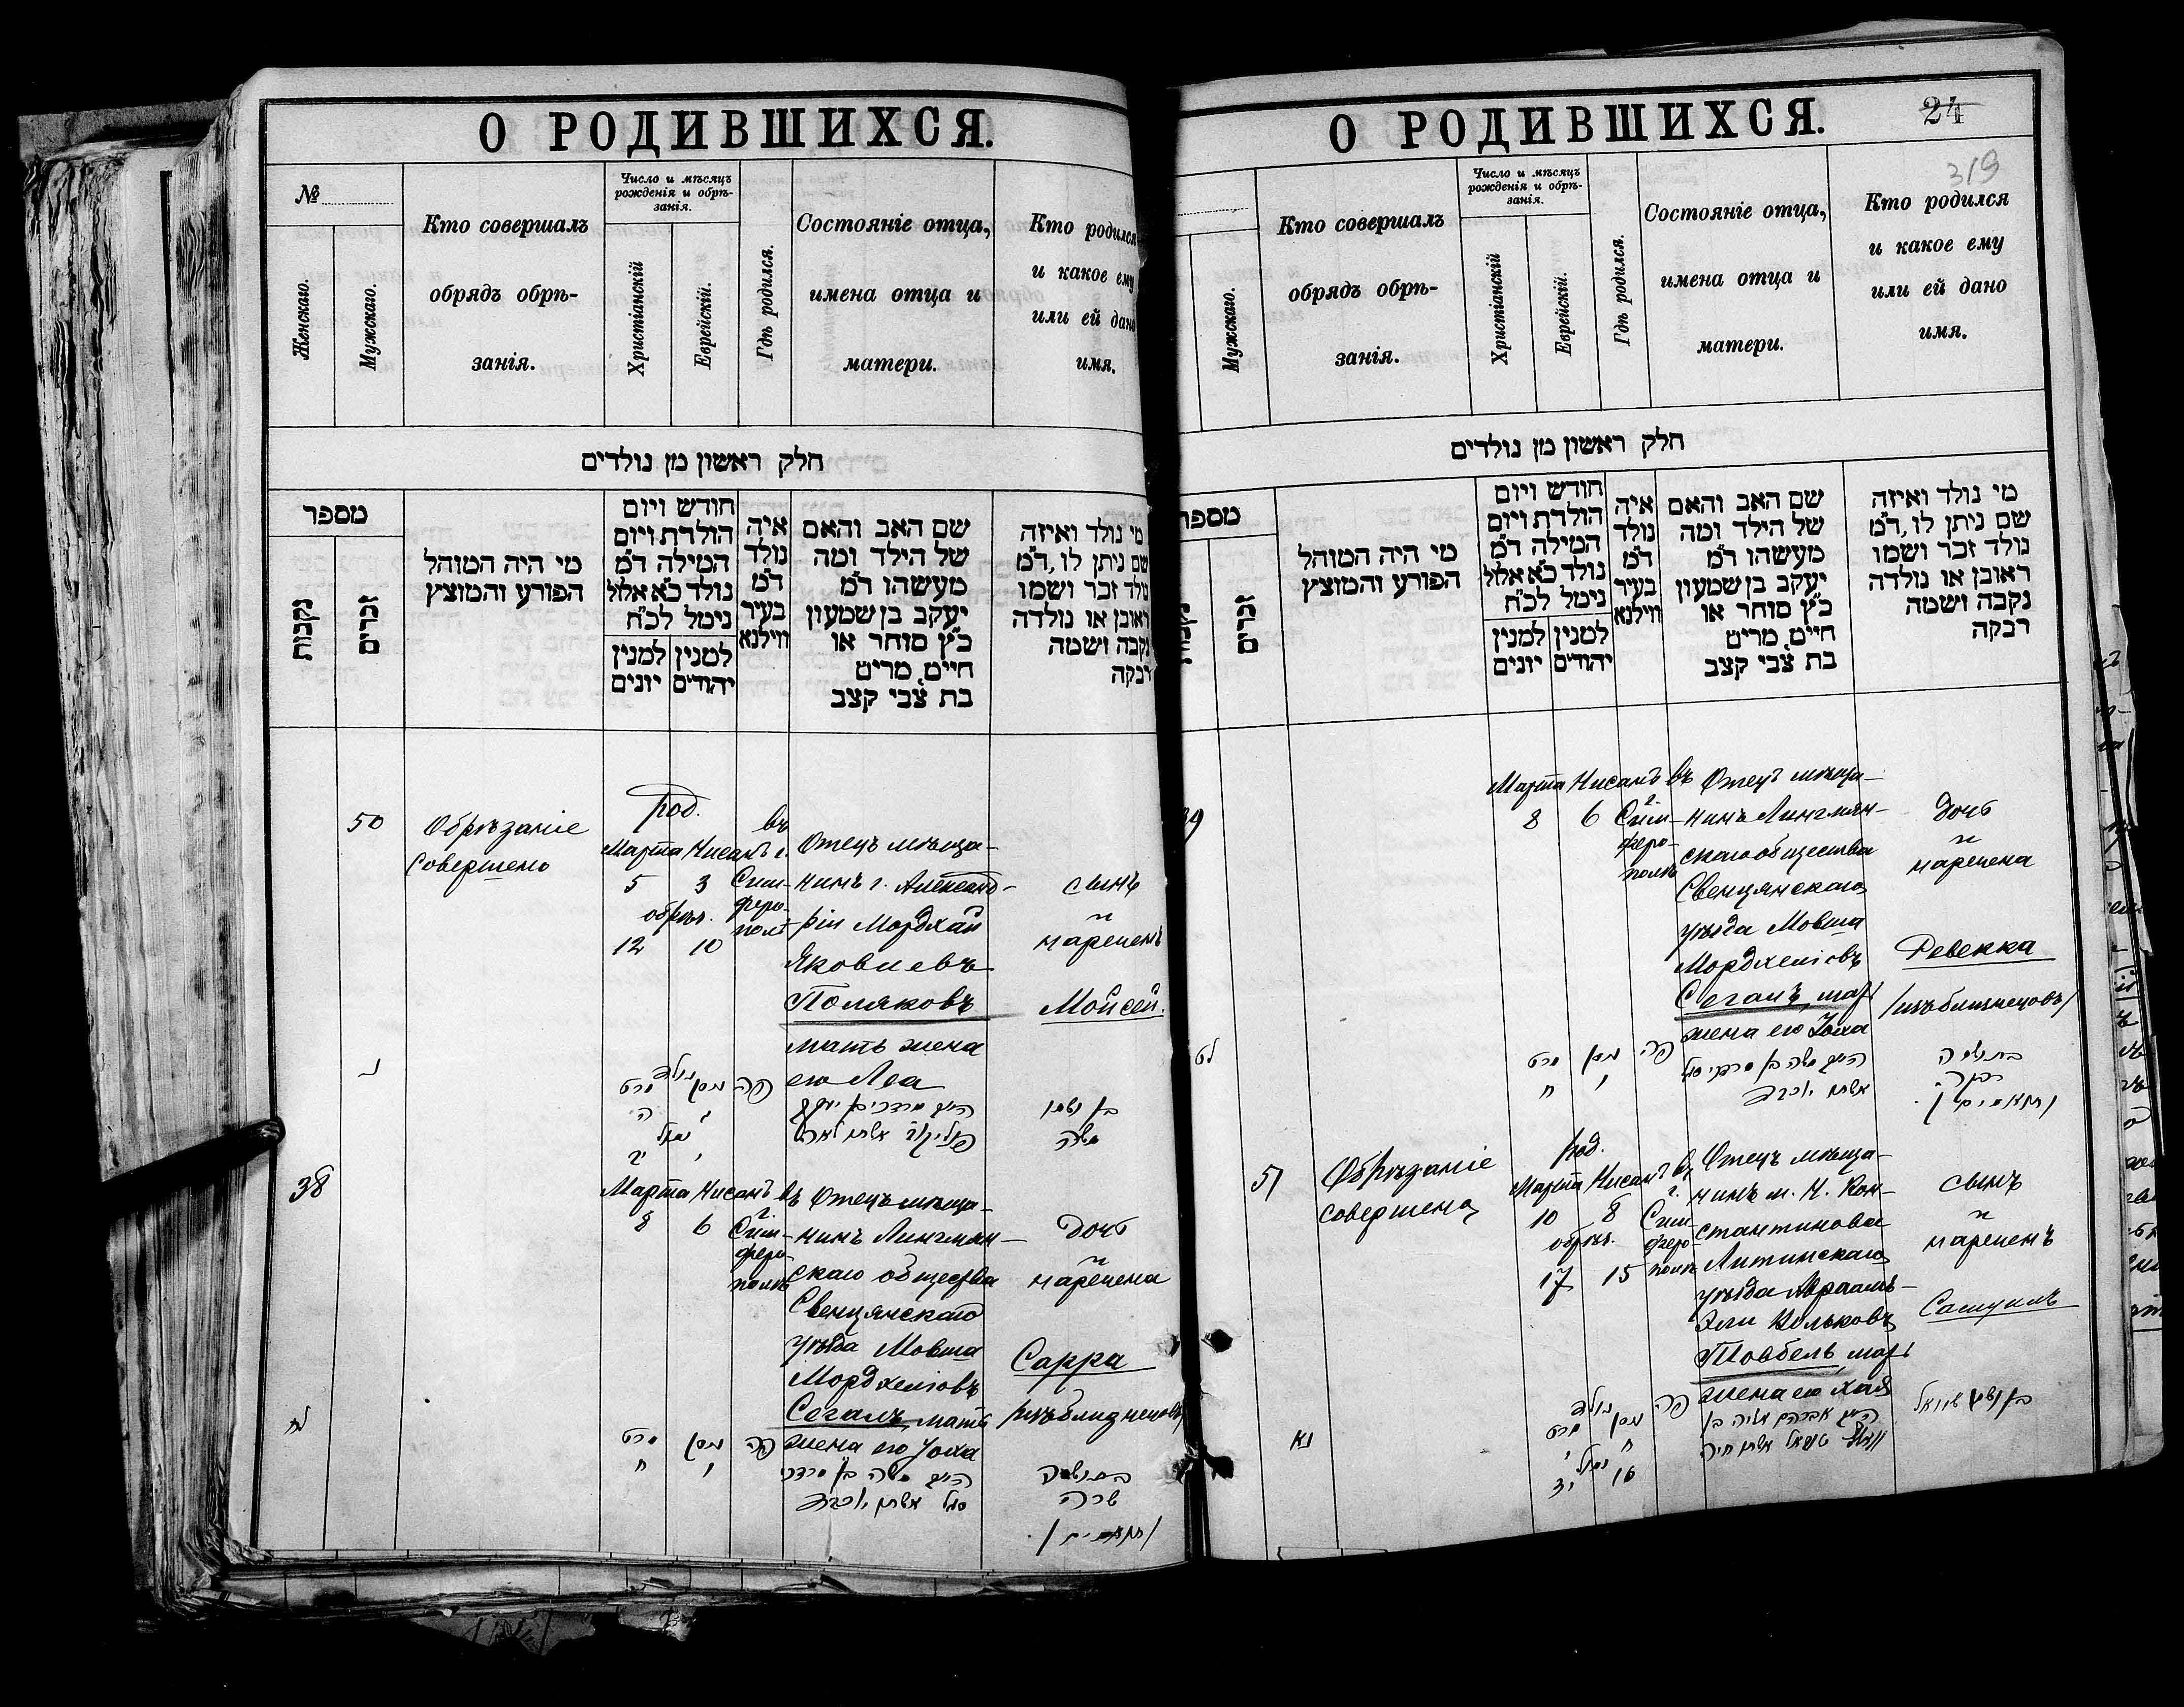 О РОДИВШИХСЯ.
№
Женскаго.
Мужскаго.
Кто совершалъ
обрядъ обрѣ-
занія.
Число и мѣсяцъ
рожденія и обрѣ-
занія.
Христіанскій
Еврейскій.
Гдѣ родился.
Состояніе отца,
имена отца и
матери.
Кто родился
и какое ему
или ей дано
имя.
חלק ראשון מן נולדים
מספר
נקבות
זכרים
מי היה המוהל
הפורע והמוצץ
חודש ויום
הולדת ויום
המילה ד״מ
נולד כ״א אלול
נימל לכ״ח
למנין
יונים
למנין
יהודים
איה
נולד
ד״מ
בעיר
ווילנא
שם האב והאם
של הילד ומה
מעשהו ד״מ
יעקב בן שמעון
כ״ץ סוחר או
חיים, מרים
בת צבי קצב
מי נולד ואיזה
שם ניתן לו, ד״מ
נולד זכר ושמו
ראובן או נולדה
נקבה ושמה
רבקה
50
Обрѣзаніе
совершено
род.
Марта Нисанъ
5 3
обрѣз.
12 10
въ
г.
Сим-
феро-
полѣ
Отецъ мѣща-
нинъ г. Александ-
ріи Мордхай
Яковлевъ
Поляковъ
мать жена
его Леа
сынъ
и
нареченъ
Мойсей.
נ
נולד
מרט ניסן
ה ג
נימול
יב י
פה
משה
38
Марта Нисанъ
8 6
въ
г.
Сим-
феро-
полѣ
Отецъ мѣща-
нинъ Лингмян-
скаго общества
Свенцянскаго
уѣзда Мовша
Мордхеліовъ
Сегалъ, мать
жена его Іоха
дочь
и
наречена
Сарра
/изъ близнецовъ/
לח
מרט ניסן
ח ו
פה
שרה
О РОДИВШИХСЯ.
24
319
Мужскаго.
Кто совершалъ
обрядъ обрѣ-
занія.
Число и мѣсяцъ
рожденія и обрѣ-
занія.
Христіанскій
Еврейскій.
Гдѣ родился.
Состояніе отца,
имена отца и
матери.
Кто родился
и какое ему
или ей дано
имя.
חלק ראשון מן נולדים
מספר
זכרים
מי היה המוהל
הפורע והמוצץ
חודש ויום
הולדת ויום
המילה ד״מ
נולד כ״א אלול
נימל לכ״ח
למנין
יונים
למנין
יהודים
איה
נולד
ד״מ
בעיר
ווילנא
שם האב והאם
של הילד ומה
מעשהו ד״מ
יעקב בן שמעון
כ״ץ סוחר או
חיים, מרים
בת צבי קצב
מי נולד ואיזה
שם ניתן לו, ד״מ
נולד זכר ושמו
ראובן או נולדה
נקבה ושמה
רבקה
39
Марта Нисанъ
8 6
въ
г.
Сим-
феро-
полѣ
Отецъ мѣща-
нинъ Лингмян-
скаго общества
Свенцянскаго
уѣзда Мовша
Мордхеліовъ
Сегалъ, мать
жена его Іоха
дочь
и
наречена
Ревекка
/изъ близнецовъ/
לט
מרט ניסן
ח ו
פה
רבקה
51
Обрѣзаніе
совершено
род.
Марта Нисанъ
10 8
обрѣз.
17 15
въ
г.
Сим-
феро-
полѣ
Отецъ мѣща-
нинъ м. Н. Кон-
стантинова
Литинскаго
уѣзда Авраамъ-
Эли Вольковъ
Товбель, мать
жена его Хая
сынъ
и
нареченъ
Самуилъ
נא
נולד
מרט ניסן
י ח
נימול
יז טו
פה